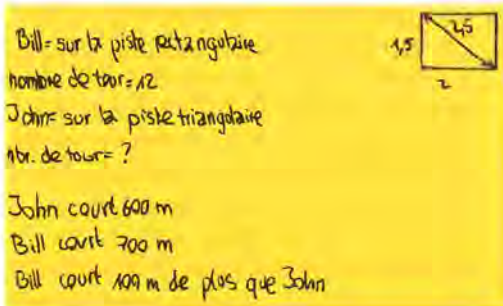 Bill= sur la piste rectangulaire
nombre de tour=12
John= sur la piste triangulaire
nbr. de tour= ?
John court 600 m
Bill court 700 m
Bill court 100 m de plus que John
2,5
1,5
2